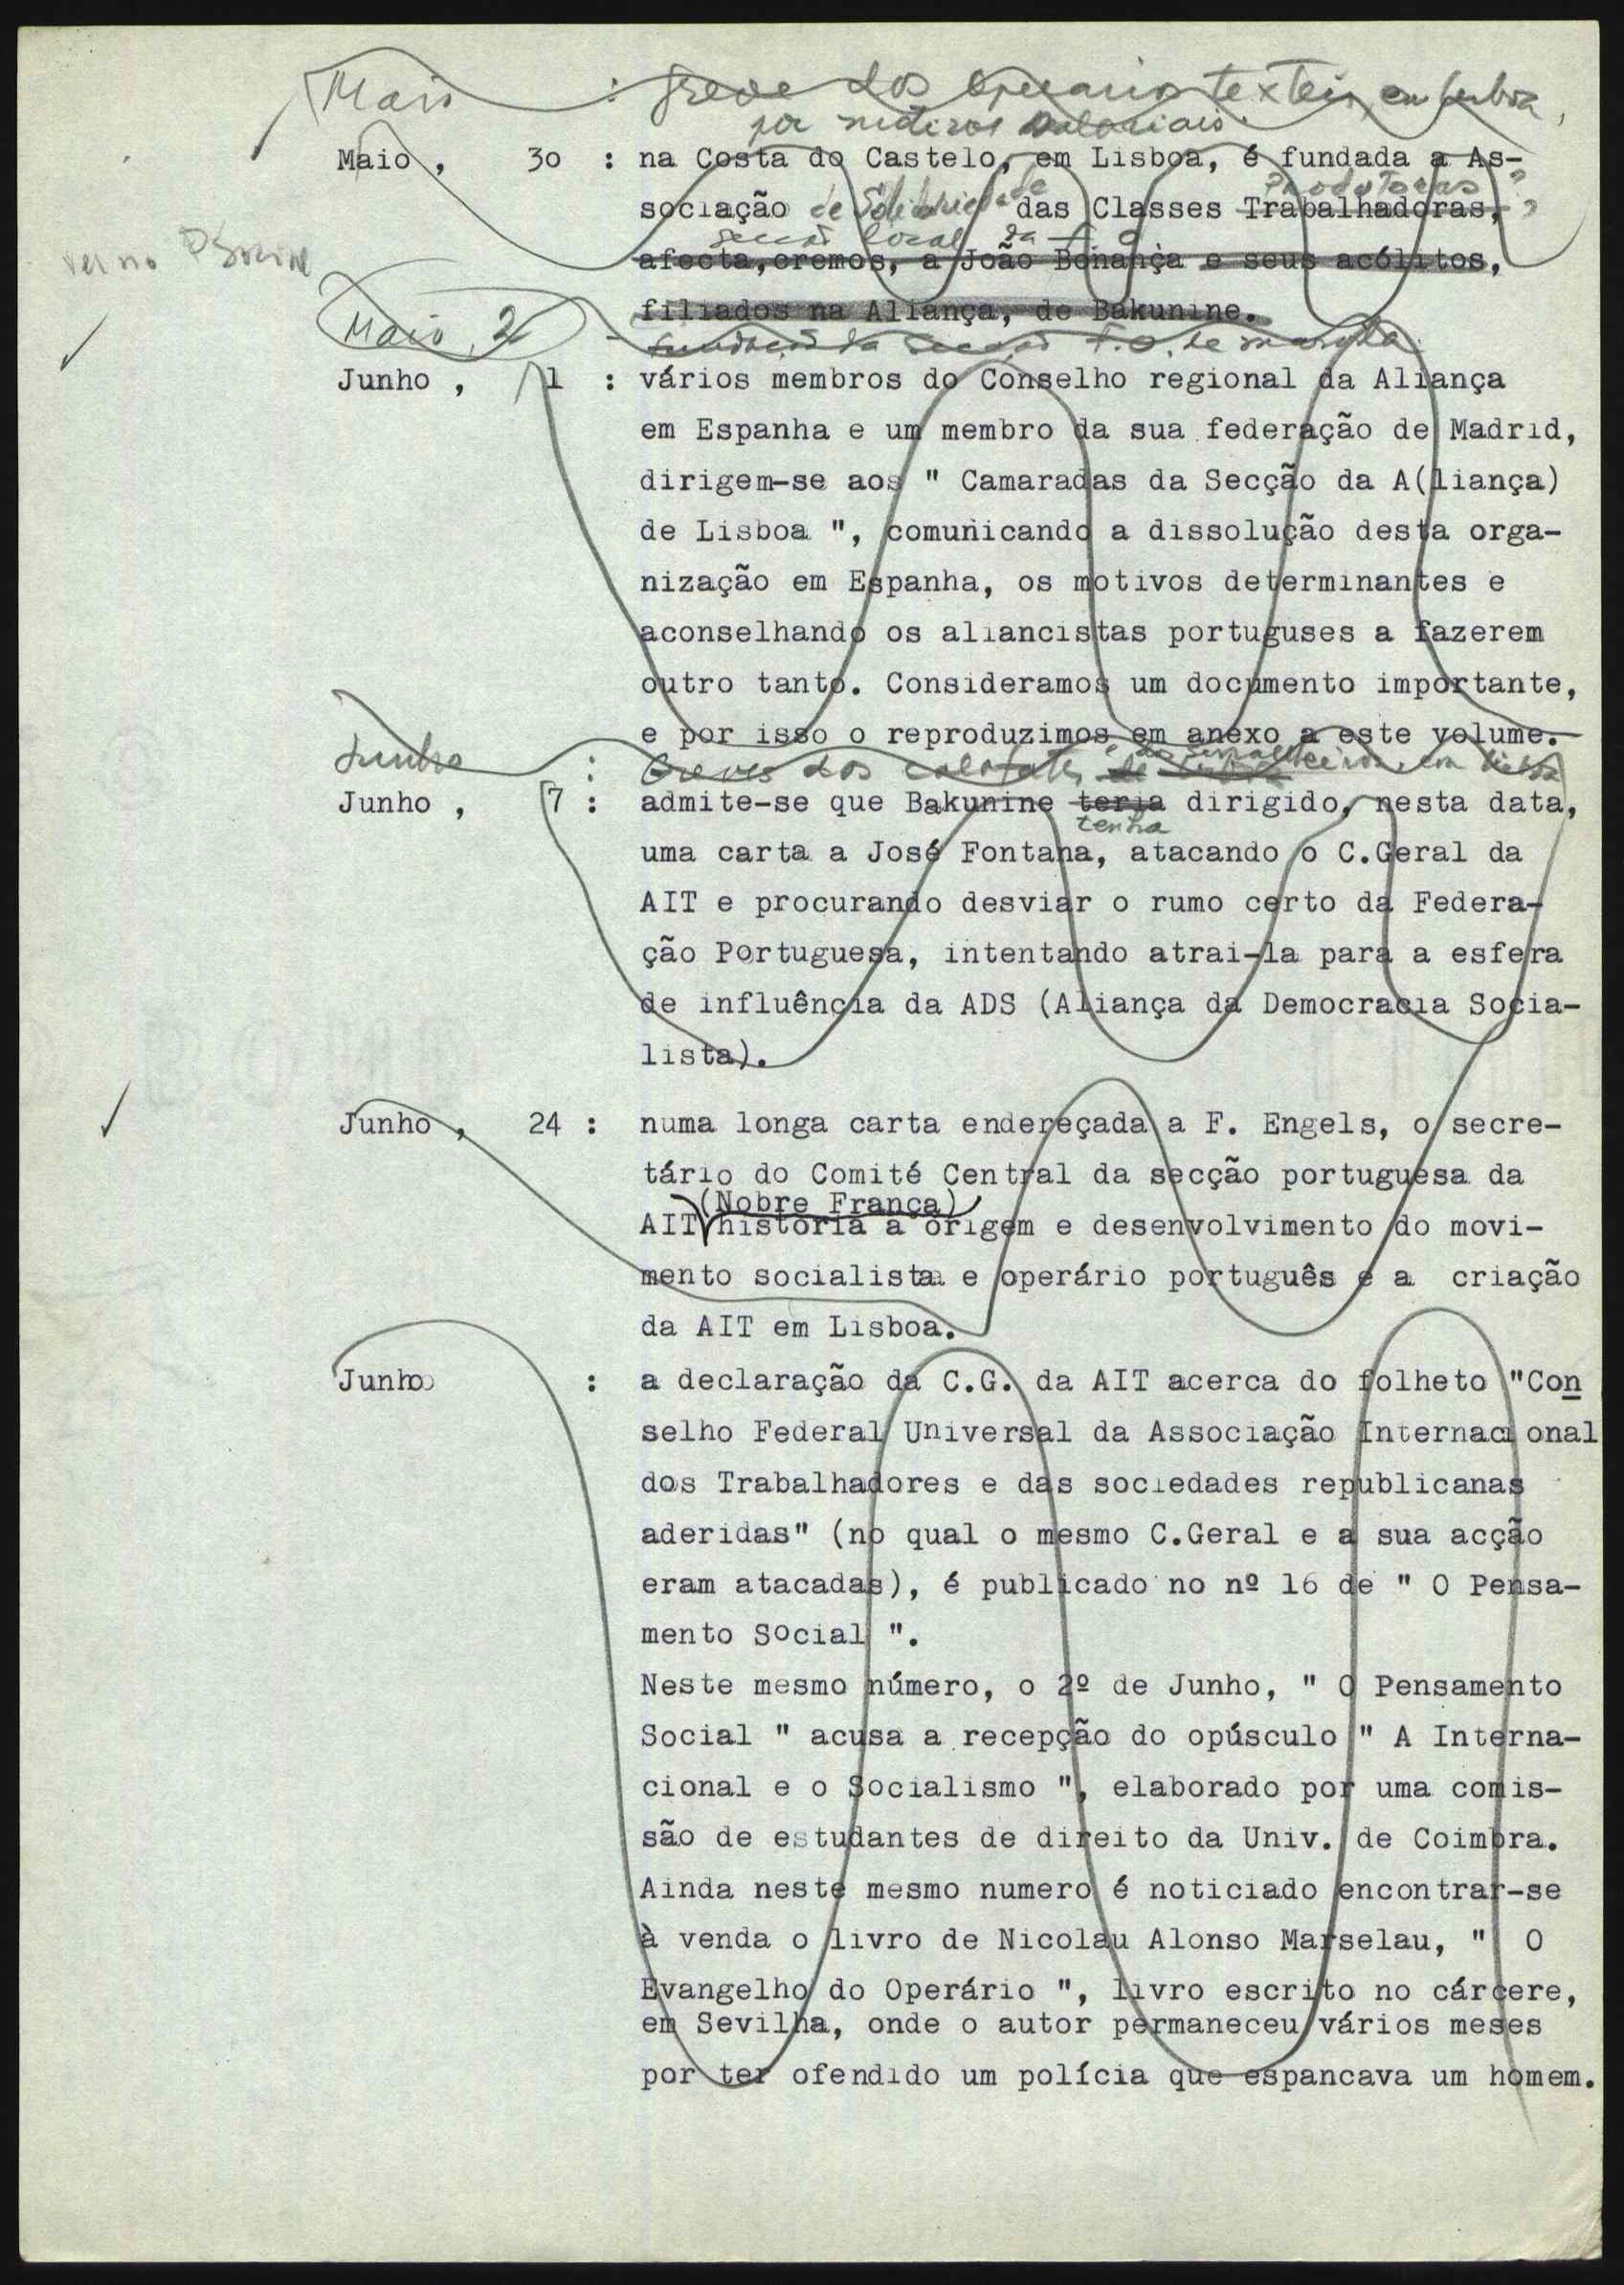 Maio : greve dos operarios texteis, em Lisboa,
por motivos salariais.
Maio , 30 : na Costa do Castelo, em Lisboa, é fundada a As-
Produtoras
sociação de Solidariedade das Classes Trabalhadoras,
secção local da
afecta, cremos, a João Bonança e seus acólitos,
filiados na Aliança, de Bakunine.
ver no
Maio, 2 - fundação da Secção
Junho , 1 : vários membros do Conselho regional da Aliança
em Espanha e um membro da sua federação de Madrid,
dirigem-se aos " Camaradas da Secção da A(liança)
de Lisboa ", comunicando a dissolução desta orga-
nização em Espanha, os motivos determinantes e
aconselhando os aliancistas portuguses a fazerem
outro tanto. Consideramos um documento importante,
e por isso o reproduzimos em anexo a este volume.
Junho : Greves dos calafates e dos serralheiros, em Lisboa
Junho , 7 : admite-se que Bakunine teria dirigido, nesta data,
tenha
uma carta a José Fontana, atacando o C.Geral da
AIT e procurando desviar o rumo certo da Federa-
ção Portuguesa, intentando atrai-la para a esfera
de influência da ADS (Aliança da Democracia Socia-
lista).
Junho , 24 : numa longa carta endereçada a F. Engels, o secre-
tário do Comité Central da secção portuguesa da
(Nobre França)
AIT historia a origem e desenvolvimento do movi-
mento socialista e operário português e a criação
da AIT em Lisboa.
Junho : a declaração da C.G. da AIT acerca do folheto "Con
selho Federal Universal da Associação Internacional
dos Trabalhadores e das sociedades republicanas
aderidas" (no qual o mesmo C.Geral e a sua acção
eram atacadas), é publicado no nº 16 de " O Pensa-
mento Social ".
Neste mesmo número, o 2º de Junho, " O Pensamento
Social " acusa a recepção do opúsculo " A Interna-
cional e o Socialismo ", elaborado por uma comis-
são de estudantes de direito da Univ. de Coimbra.
Ainda neste mesmo numero é noticiado encontrar-se
à venda o livro de Nicolau Alonso Marselau, " O
Evangelho do Operário ", livro escrito no cárcere,
em Sevilha, onde o autor permaneceu vários meses
por ter ofendido um polícia que espancava um homem.